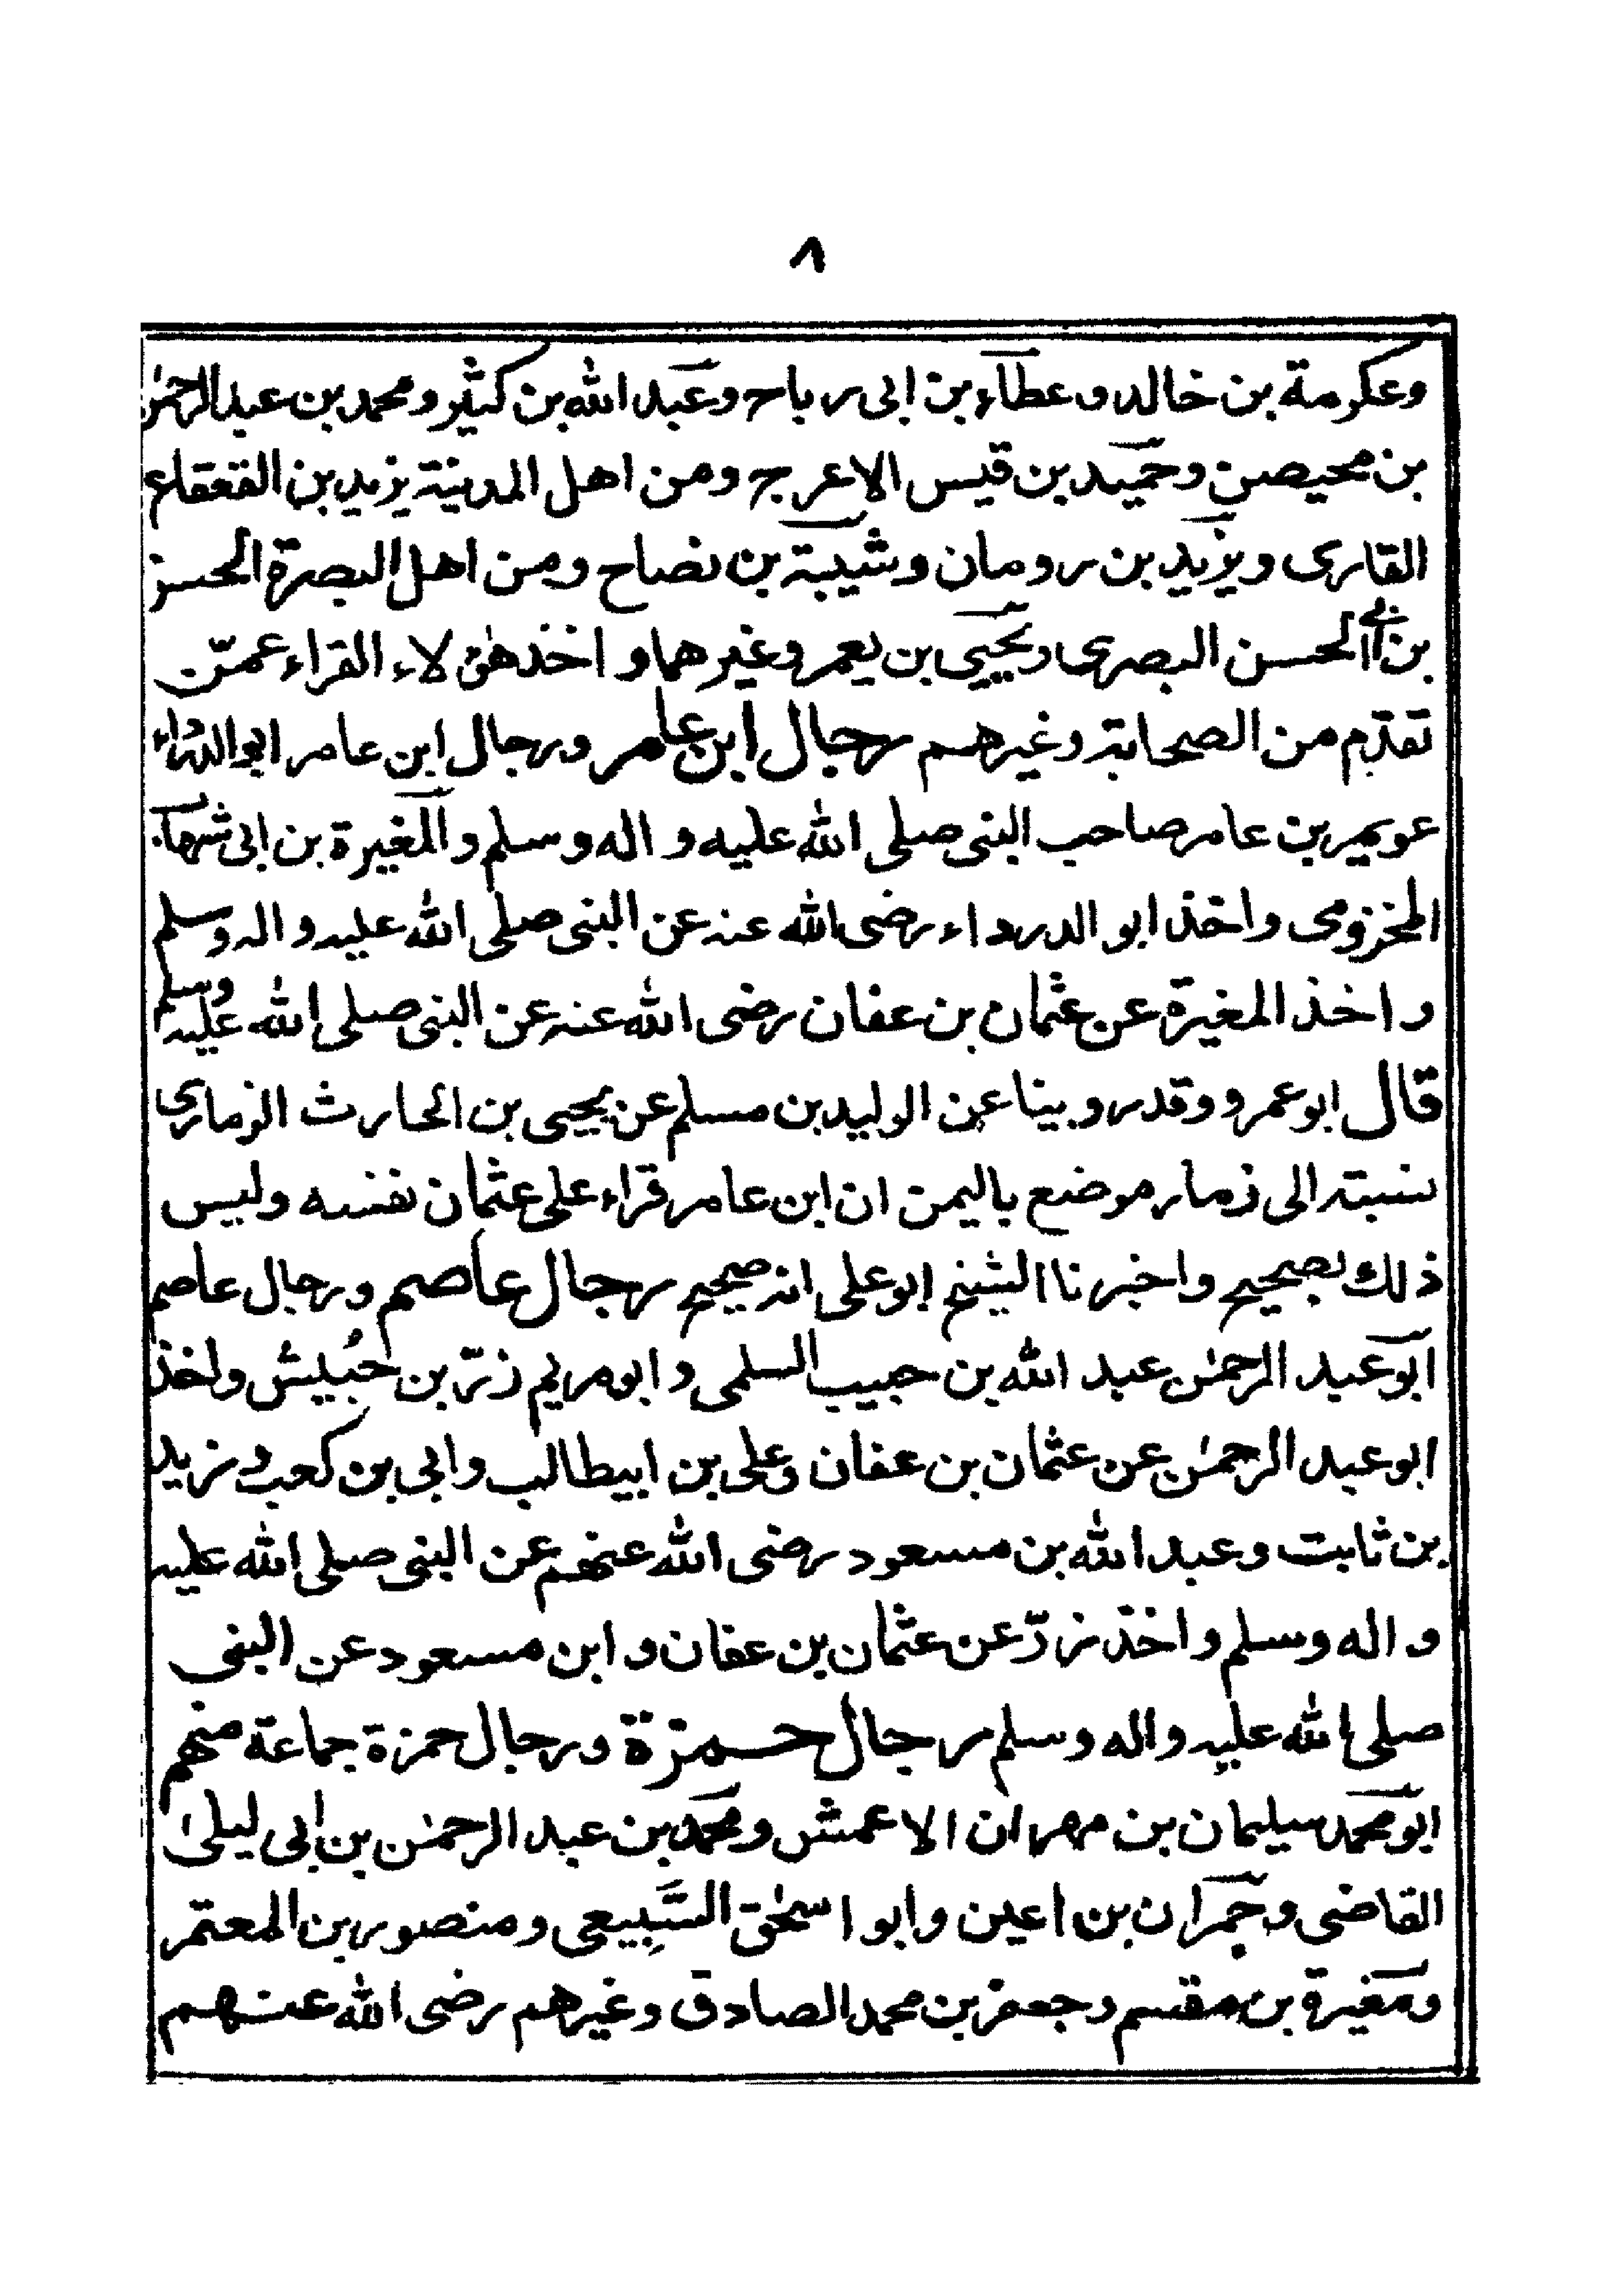 ٨
وعكرمة بن خالد و عطآء بن ابى رباح وعبد الله بن كثير ومحمد بن عبدالرحمٰن
بن محيصن وحميد بن قيس الاعرج ومن اهل المدينة يزيد بن القعقاع
القارى ويزيد بن رومان وشيبة بن نصاح ومن اهل البصرة الحسن
بن ابى الحسن البصرى ويحيى بن يعمر وغيرهما و اخذ هٰؤلاء القراء عمّن
تقدّم من الصحابة وغيرهم رجال ابن عامر ورجال ابن عامر ابوالدرداء
عويمر بن عامر صاحب النبى صلى الله عليه و اله وسلم والمغيرة بن ابى شهاب
المخزومى واخذ ابو الدرداء رضى الله عنه عن النبى صلى الله عليه و اله وسلم
و اخذ المغيرة عن عثمان بن عفان رضى الله عنه عن النبى صلى الله عليه وسلم
قال ابو عمرو وقد روينا عن الوليد بن مسلم عن يحيى بن الحارث الزمارى
نسبته الى ذمار موضع باليمن ان ابن عامر قراء على عثمان نفسه وليس
ذلك بصحيح واخبرنا الشيخ ابو على انه صحيح رجال عاصم ورجال عاصم
ابو عبد الرحمٰن عبد الله بن حبيب السلمى و ابو مريم زرّ بن حُبيش واخذ
ابو عبد الرحمٰن عن عثمان بن عفان وعلى بن ابيطالب وابى بن كعب وزيد
بن ثابت وعبد الله بن مسعود رضى الله عنهم عن النبى صلى الله عليه
و اله وسلم و اخذ زرّ عن عثمان بن عفان و ابن مسعود عن النبى
صلى الله عليه واله وسلم رجال حمزة ورجال حمزة جماعة منهم
ابو محمد سليمان بن مهران الاعمش ومحمد بن عبد الرحمٰن بن ابى ليلىٰ
القاضى وحمران بن اعين وابو اسحٰق السَّبِيعى ومنصور بن المعتمر
ومغيرة بن مقسم وجعفر بن محمد الصادق وغيرهم رضى الله عنهم